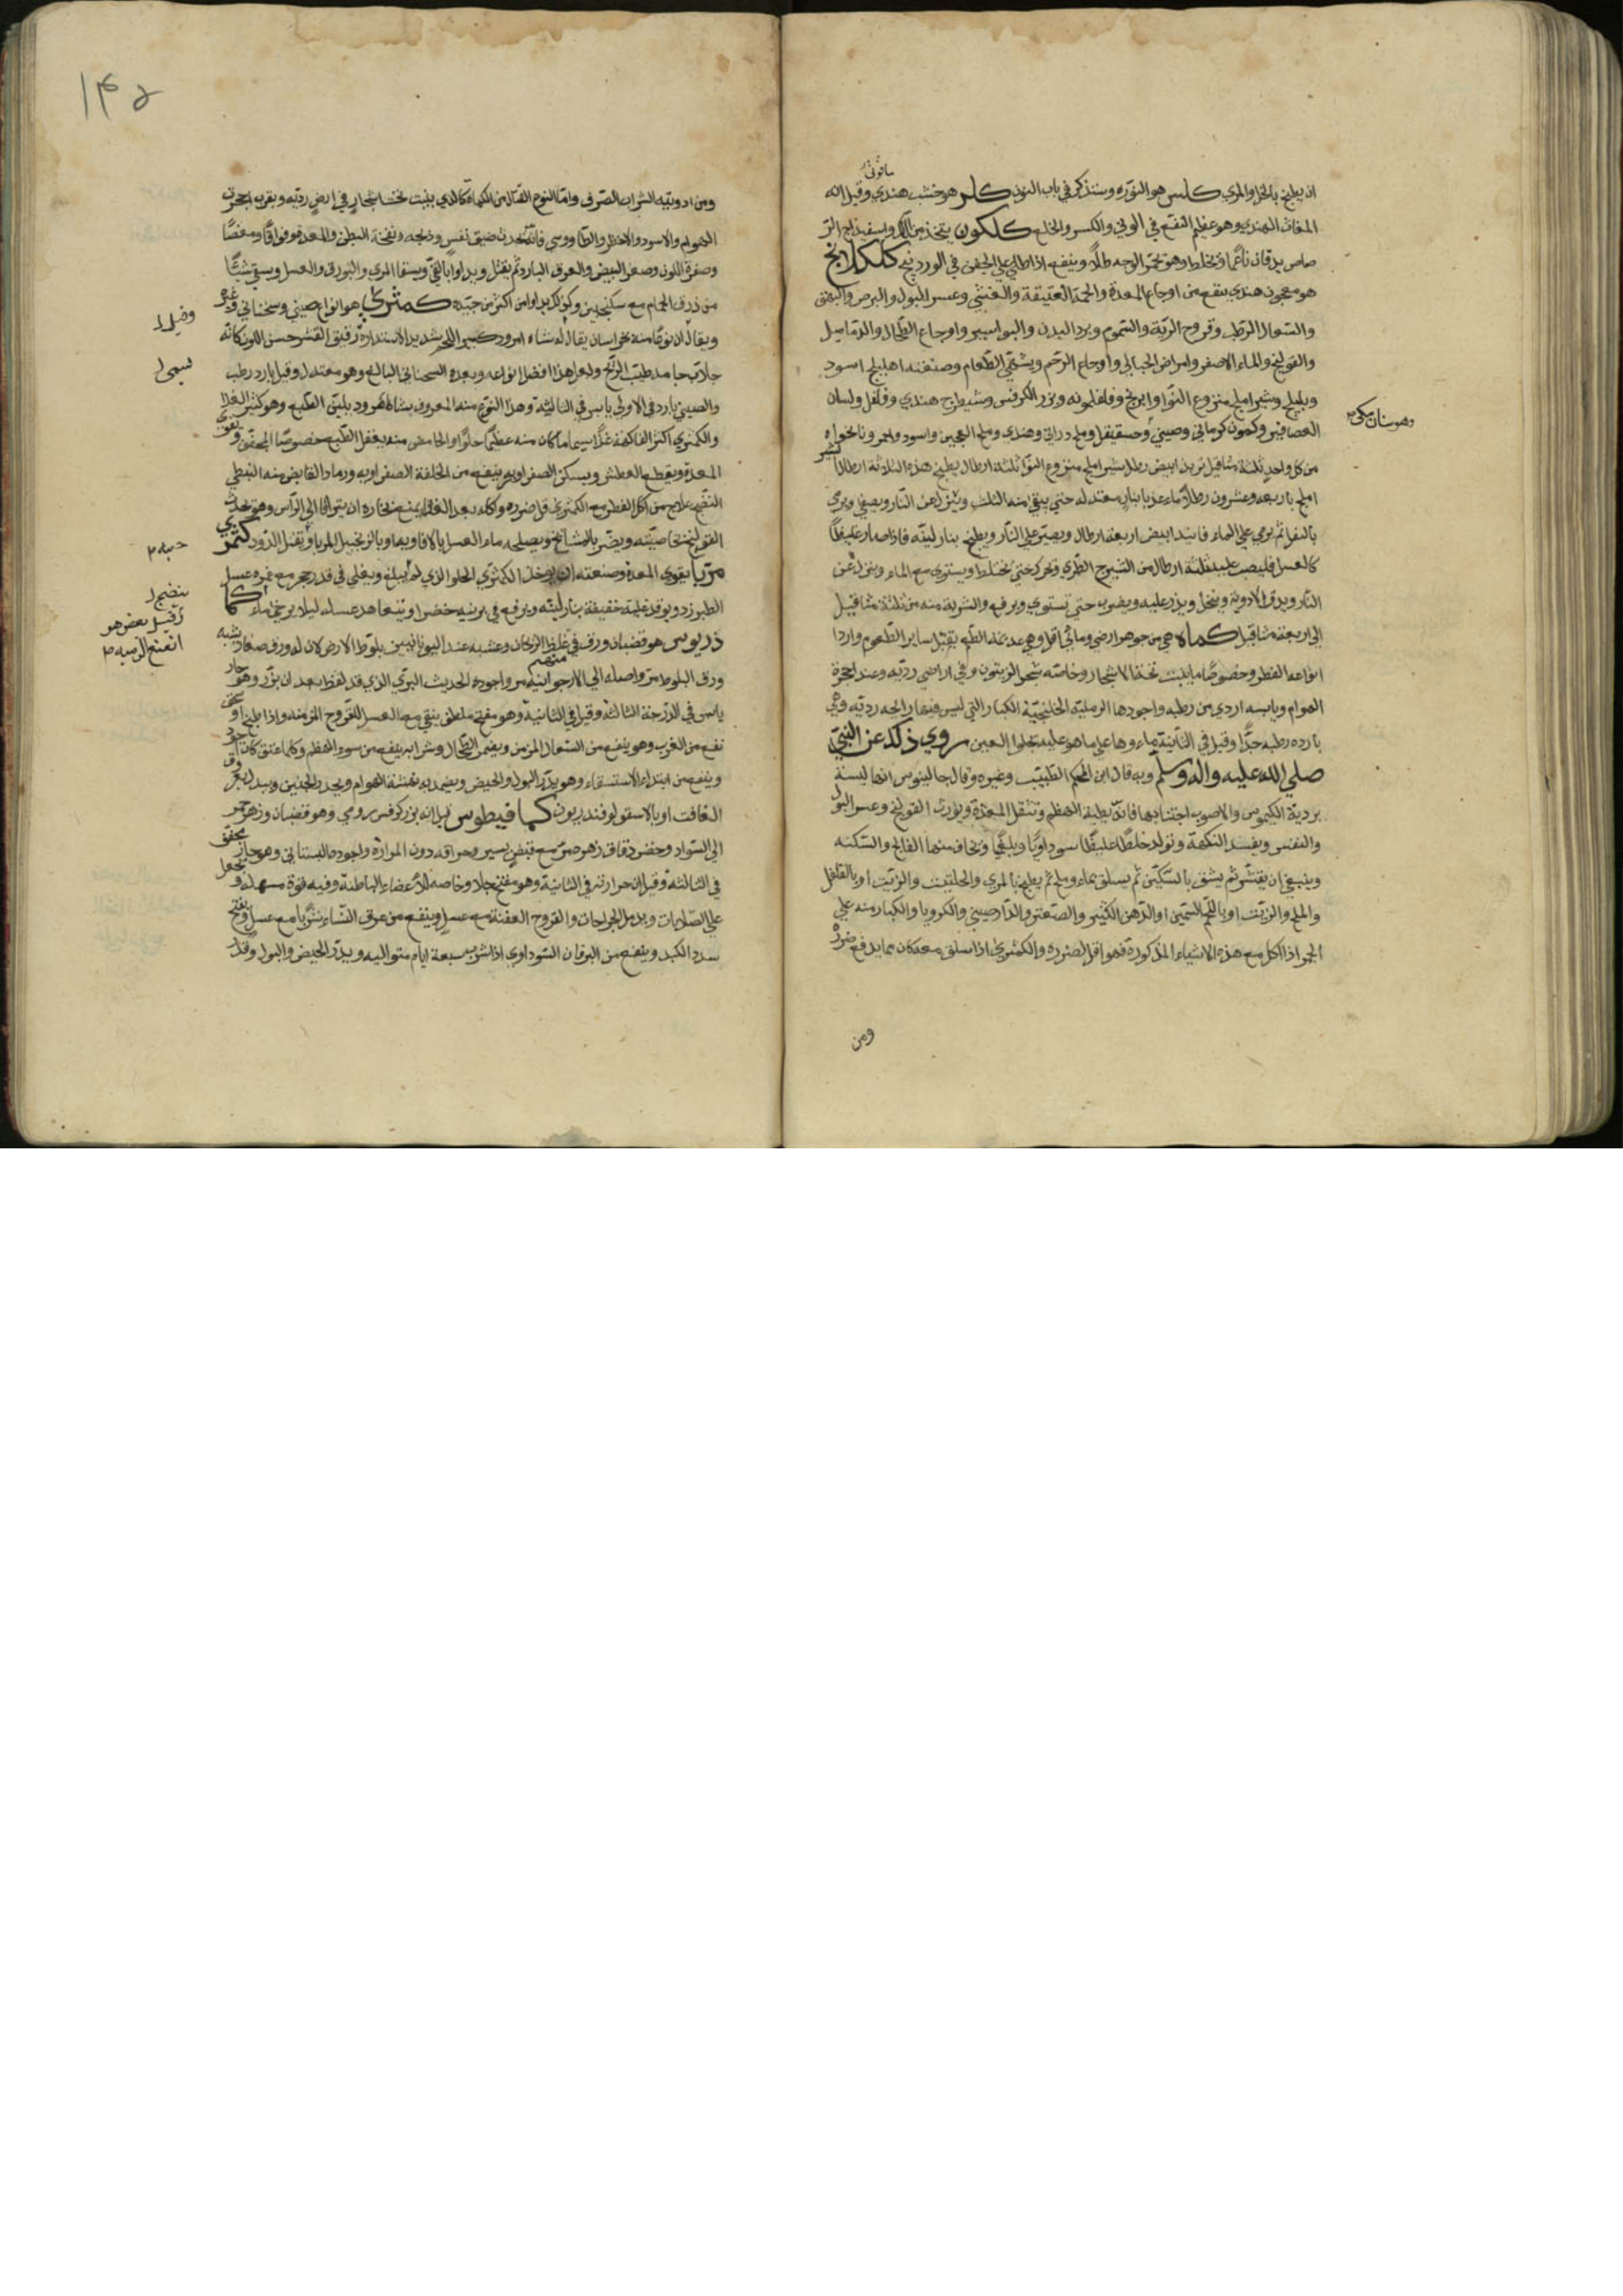 ان يطبخ بالخل والمري كلس هو النوره وستذكر في باب النون كلر هو خشب هندي وقيل انه
المغاث الهندي وهو عظيم النفع في الوثي والكسر والخلع كلكون يتخذ من اللك واسفيذاج الر
صاص يدقان ناعما ويخلط وهو يحمر الوجه طلاء وينفع اذا طلي علي الجفن في الوردينج كلكلانج
هو معجون هندي ينفع من اوجاع المعدة والحمة العتيقة والغشي وعسر البول والبرص والبهق
والسعال الرطب وقروح الرية والسموم وبرد البدن والبواسير واوجاع الطحال والدماميل
والقولنج والماء الاصفر وامراض الحبالي واوجاع الرحم ويشهي الطعام وصنعته اهليلج اسود
وبليلج وشير املج منزوع النوا وابرنج وفلفلمونه وبزر الكرفس وشيطرج هندي وفلفل ولسان
العصافير وكمون كرماني وصيني وملح دراني وهندي وملح العجين واسود واحمر ونانخواه
وهو سنان مكي
من كل واحد ثلثة مثاقيل تربد ابيض رطل شير املج منزوع النوا ثلثة ارطال يطبخ هذه الثلاثة ارطال شير
املج باربعه وعشرون رطلا ماء عذبا بنار معتدله حتي يبقي منه الثلث وينزل عن النار ويصفي ويرمي
بالثفل ثم يرمي علي الماء فانيد ابيض اربعة ارطال ويصير علي النار ويطبخ بنار لينه فاذا صار غليظا
كالعسل فليصب عليه ثلثة ارطال من الشيرج الطري وتحركه حتي يختلط ويستوي مع الماء وينزل عن
النار ويدق الادوية وينخل ويذر عليه ويضرب حتي تستوي ويرفع والشربة منه من ثلثة مثاقيل
الي اربعة مثاقيل كماة هي من جوهر ارضي ومائي اقل وهي عديمة الطعم يقبل ساير الطعوم واردا
انواعه الفطر وخصوصا ما ينبت تحت الاشجار وخاصه شجر الزيتون وفي اراضي رديه وعند اجحرة
الهوام ويابسه اردي من رطبه واجودها الرمليه الخلنجية الكبار التي ليس فيها رايحه رديه وهي
بارده رطبه جدا وقيل في الثانية وماءوها علي ما هو عليه يجلوا العين روي ذلك عن النبي
صلي الله عليه واله وسلم وبه قال ابن الحكم الطبيب وغيره وقال جالينوس انها ليسة
بردية الكيموس والاصوب اجتنابها فانه بطية الهضم وتثقل المعدة ويورث القولنج وعسر البول
والنفس ويفسد النكهة وتولد خلطا غليظا سوداويا وبلغميا ويخاف منها الفالج والسكته
وينبغي ان يقشر ثم يشق بالسكين ثم يسلق بماء وملح ثم يطبخ بالمري والحلتيت والزيت او بالفلفل
والملح والزيت او باللحم السمين او الدهن الكثير والصعتر والدارصيني والكرويا والكبار منه علي
الجمر اذا اكل مع هذه الاشياء المذكورة فهو اقل لضرره والكمثري اذا سلق معه كان مما يدفع ضرره
ومن
١٤٥
ومن ادويته الشراب الصرف واما النوع القتال من الكماة كالذي ينبت تحت اشجار في ارض رديه وبقرب اجحرت
الهوام والاسود والاخضر والطاووسي فانه يحدث ضيق نفس وذبحه ونفخة البطن والمعده وفواقا ومغصا
وصفرة اللون وصغر النبض والعرق البارد ثم يقتل ويداوا بالقي ويسقا المري والبورق والعسل ويسقي شيئا
من ذرق الحمام مع سكنجبين وكذلك يداوا من اكثر من جيده كمثري هو انواع صيني وسختاني وغيره
ويقال ان نوعا منه بخراسان يقال له شاه امرود كبير اللحم شديد الاستدارة رقيق القشر حسن اللون كانه
جلاب جامد طيب الريح ولعل هذا افضل انواعه وبعده السختاني البالغ وهو معتدل وقيل بارد رطب
والصيني بارد في الاولي يابس في الثانية وهذا النوع منه المعروف بشاه امرود يلين الطبع وهو كثير الغذا
والكمثري اكثر الفاكهة غذا سيما ما كان منه عظيما حلوا والحامض منه يعقل الطبع خصوصا المجفف ويقوي
المعدة ويقطع العطش ويسكن الصفرا وهو ينفع من الخلفة الصفراويه ورماد القابض منه البطي
النضج علاج من اكل الفطر مع الكمثري قل ضرره واكله بعد الغذا يمنع بخاره ان يتراقا الي الراس وهو يحدث
القولنج بخاصيته ويضر بالمشايخ ويصلحه ماء العسل بالافاويه او بالزنجبيل المربا ويقتل الدود كمثري
مربا يقوي المعدة وصنعته ان يدخل الكمثري الحلو الذي لم يبلغ ويغلي في قدر حجر مع غمره عسل
الطبرزد ويوقد عليه خفيفة بنار لينه ويرفع في برنيه خضرا ويتعاهد عسله ليلا يرخي ماء كما
ذريوس هو قضبان ورق في غلظ الريحان وعشبه عند اليونانيين بلوط الارض لان له ورق صغار يشبه
ورق البلوط مر واصله الي الارجوانيه مر واجوده الحديث البري الذي قد لقط بعد ان بزر وهو حار
يابس في الدرجة الثالثة وقيل في الثانية وهو مفتح ملطف ينقي مع العسل القروح المزمنه واذا طبخ او
نفع من الغرب وهو ينفع من السعال المزمن ويضمر الطحال وشرابه ينفع من سوء الهضم وكلما عتق كان اجود
وينفع من ابتداء الاستسقاء وهو يدر البول والحيض ويضمد به نهشة الهوام ويحدر الجنين وبدله
الغافت او بالاسقولوقندريون كمافيطوس قيل انه بزر كرفس رومي وهو قضبان وزهر
الي السواد وخضر دقاق زهر مر مع قبض يسير وحراقه دون المرارة واجوده البستاني وهو حار يجفف
في الثالثة وقيل ان حرارته في الثانية وهو مفتح جلاء وخاصه للاعضاء الباطنة وفيه قوة مسهله ويجعل
علي الصلابات ويدمل الجراحات والقروح العفنة مع عسل وينفع من عرق النساء شربا مع عسل ويفتح
سدد الكبد وينفع من اليرقان السوداوي اذا شرب سبعة ايام متواليه ويدر الحيض والبول وقد